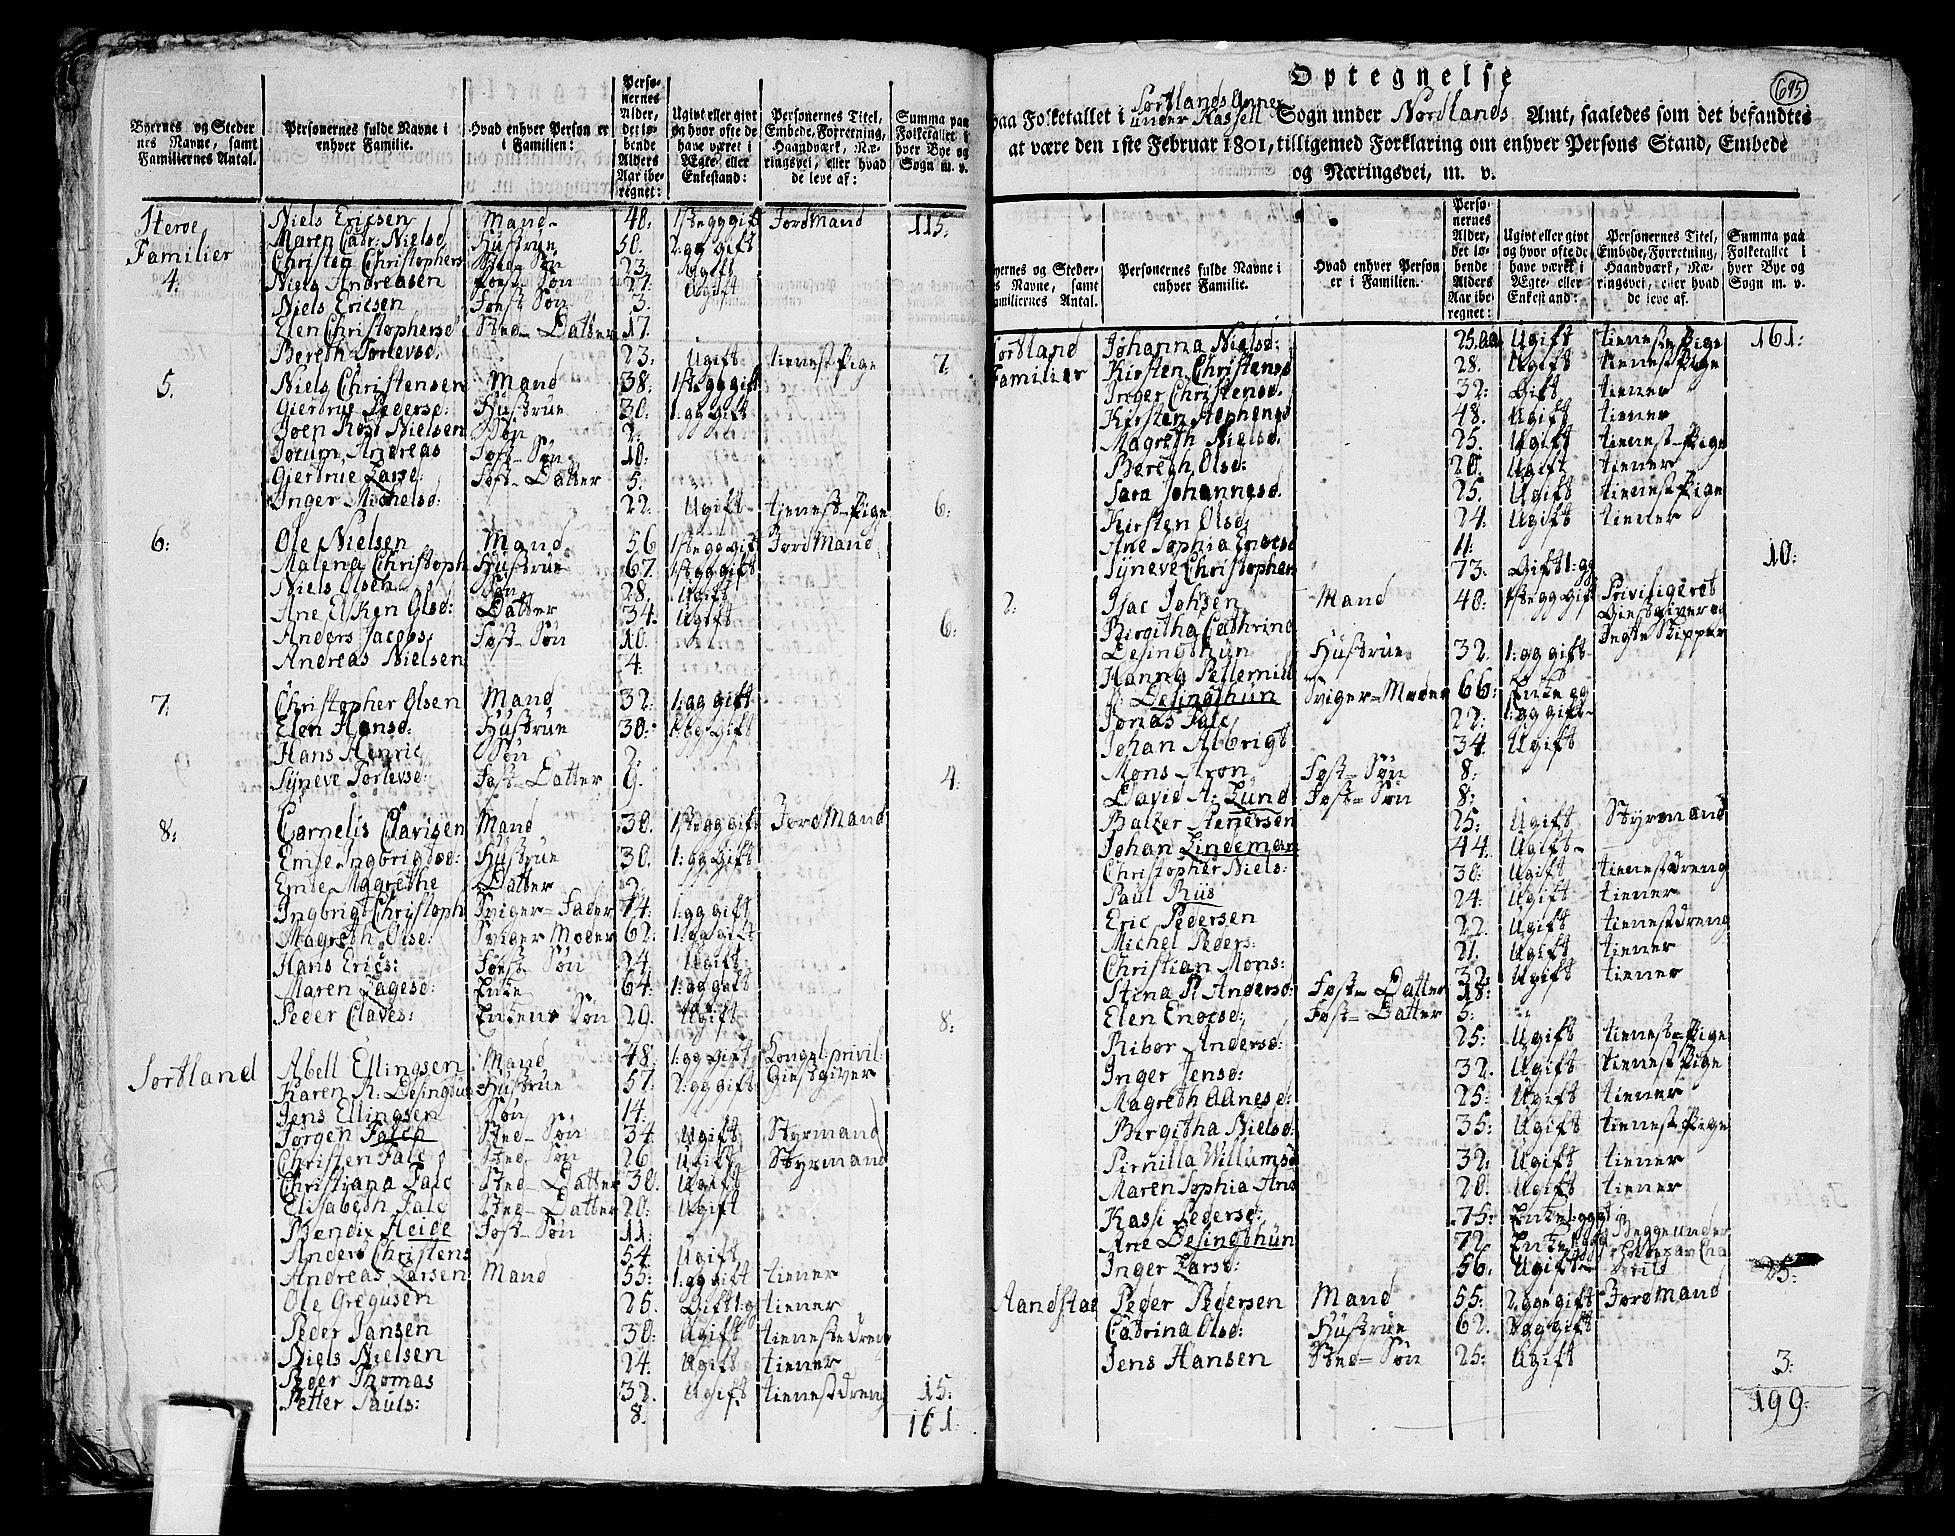 Byernes og Steder
nes Navne, samt
Familiernes Antal.
Personernes fulde Navne i
enhver Familie.
Hvad enhver Person er
i Familien:
Perso-
nernes
Alder,
det lø-
bende
Alders
Aar ibe-
regnet:
Ugivt eller givt
og hvor ofte de
have været i
Ægte- eller
Enkestand:
Personernes Titel,
Embede, Forretning,
Haandværk, Næ-
ringsvei, eller hvad
de leve af:
Summa paa
Folketallet i
hver Bye og
Sogn m. v.
Niels Ericsen Mand 40. 1ste gg gift Jord Mand 115.
Familier Maren Cadr: Nielsd Hustrue 50. 2: gg gift
Christen Christophers Sted Søn 23. Ugift
4. Niels Andreasen Fost Søn 27. Ugift
Niels Ericsen Fost Søn 3.
Elen Christophersd Sted-Datter 17.
Bereth Torlevsd. 23. Ugift tienest Pige 7.
5. Niels Christensen Mand 38. 1ste gg gift
Giertrue Pedersd: Hustrue 30. 1: gg gift
Joen Nielsen Søn 2.
Jocum Andreas Fost-Søn 10.
Giertrue Larsd: Fost-Datter 5.
Inger Michelsd: 22. Ugift tienest-Pige 6:
6: Ole Nielsen Mand 56 1ste gg gift Jord Mand
Malena Christoph Hustrue 67. 1ste gg gift
Niels Olsen Søn 28. Ugift
Ane Elken Olsd: Datter 34. Ugift
Anders Jacobs: Fost-Søn 10. 6:
Andreas Nielsen 4.
7. Christopher Olsen Mand 32: 1: gg gift
Elen Hansd: Hustrue 30: gg gift
Hans Henric Søn 2.
Syneve Torlevsd: Fost-Datter 9. 4.
8: Cornelis Clavisen Mand 30. 1ste gg gift Jord Mand
Emte Ingbrigtsd: Hustrue 30. 1: gg gift
Emte Magrethe Datter 2.
Ingbrigt Christoph Sviger-Fader 74: 1: gg gift
Magreth Olsd: Sviger Moder 62: 1: gg gift
Hans Erics: Fost Søn 24. Ugift
Maren Lagesd: Enke 64: 1: gg gift
Peder Claves: Enkens Søn 20. Ugift 8:
Sortland Abell Ellingsen Mand 48: 1: gg gift Kongel: privil:
Karen R: Desingtun Hustrue 57. 2: gg gift Giestgiver
Jens Ellingsen Søn 14.
Jørgen Falch Sted-Søn 34. Ugift Styrmand
Christen Falc Sted-Søn 26. Ugift Styrmand
Christiana Falc Sted-Datter 30. Ugift
Elisabeth Falc Sted-Datter 20: Ugift
Bendix Heide Fost-Søn 11:
Anders Christens 54. Ugift
Andreas Larsen Mand 55: 1: gg gift tiener
Ole Gregusen 25. Gift 1: g tiener
Peder Jansen 30: Ugift tieneste dren
Niels Nielsen 24. Ugift tiener
Peder Thomas 32. Ugift tienestdreng 15:
Petter Pauls: 8. 161:
Optegnelse
695
paa Folketallet i Sortlands Annex under Hassell Sogn under Nordlands Amt, saaledes som det befandtes
at være den 1ste Februar 1801, tilligemed Forklaring om enhver Persons Stand, Embede
og Næringsvei, m. v.
yernes og Steder-
s Navne, samt
amiliernes Antal.
Personernes fulde Navne i
enhver Familie.
Hvad enhver Person
er i Familien.
Perso-
nernes
Alder,
det lø-
bende
Alders
Aar ibe-
regnet:
Ugivt eller givt
og hvor ofte de
have været i
Ægte- eller
Enkestand:
Personernes Titel,
Embede, Forretning,
Haandværk, Næ-
ringsvei, eller hvad
de leve af.
Summa paa
Folketallet i
hver Bye og
Sogn m. v.
Sortland Johanna Nielsd: 25. Aa Ugift tieneste Pige 161:
Familier Kirsten Christensd 28. Ugift tienest Pige
Inger Christensd: 32: Gift tiener
Kirsten Stephensd 48. Ugift tiener
Magreth Nielsd. 25. Ugift tienest-Pige
Bereth Olsd: 20. Ugift tiener
Sara Johannesd. 25. Ugift tienest Pige
Kirsten Olsd: 24: Ugift tiener
Ane Sophia Enocsd 11:
Syneve Christopher 73: Gift 1: gg 10:
2. Isac Johsen Mand 40: 1ste gg Gift Priviligeret
Birgitha Cathrina Giestgiver og
Desingthun Hustrue 32. 1: gg gift Jegte Skipper
Hanna Petternill
Desingthun Sviger-Moder 66: Enke
Jonas Falc 22: 1: gg gift
Johan Albrigt 34. Ugift
Mons Aron Fost-Søn 8:
David A: Lund Fost-Søn 8:
Baltzer Andersen 25: Ugift Styrmand
Johan Lindeman 44. Ugift
Christopher Niels: 30: Ugift tienestdreng
Paul Riis 24. Ugift tiener
Eric Pedersen 22. Ugift tienestdreng
Michel Peders: 21. Ugift tiener
Christian Mons: 32: Ugift tiener
Stina P. Andersd: Fost-Datter 18:
Elen Enocsd: Fost-Datter 5:
Ribor Andersd: 25: Ugift tienest-Pige
Inger Jensd: 32. Ugift tienest Pige
Magreth Aanesd: 25: Ugift tiener
Birgitha Nielsd: 35: Ugift tienest Pige
Pirnilla Willumsd 32: Ugift tiener
Maren Sophia And 20. Ugift tiener
Kassi Pedersd: 75: Enke 1 gg
Ane Desingthun 72. Enke Begge under
Inger Larsd: 56. Ugift 25:
Aandstad Peder Pedersen Mand 55: 2 gge gift Jord Mand
Cadrina Olsd: Hustrue 62. gg gift
Jens Hansen Sted-Søn 25: Ugift 3:
199.